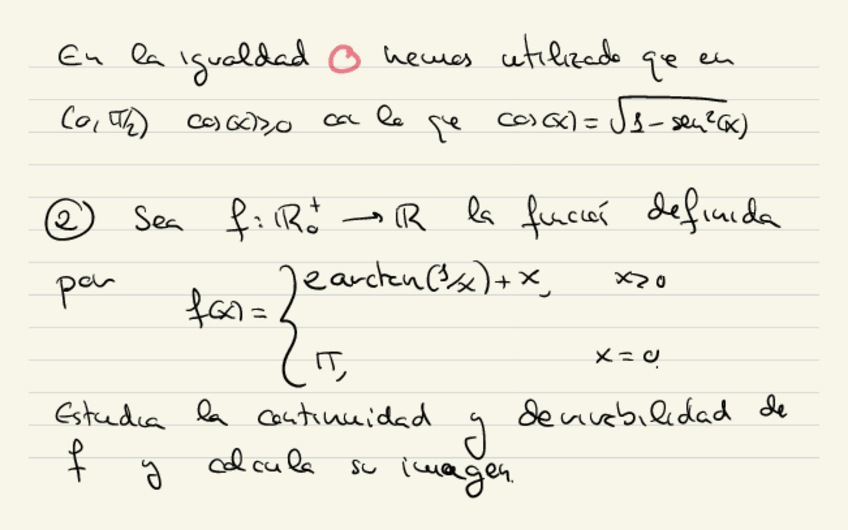 En la igualdad O hemos utilizado que en
(0, π/2) cos(x)≥0 con lo que cos(x) = √1 - sen²(x)
② Sea f: ℝ₀⁺ → ℝ la función definida
por f(x) = { 2 arctan(1/x) + x, x>0
π, x = 0.
Estudia la continuidad y derivabilidad de
f y calcula su imagen.